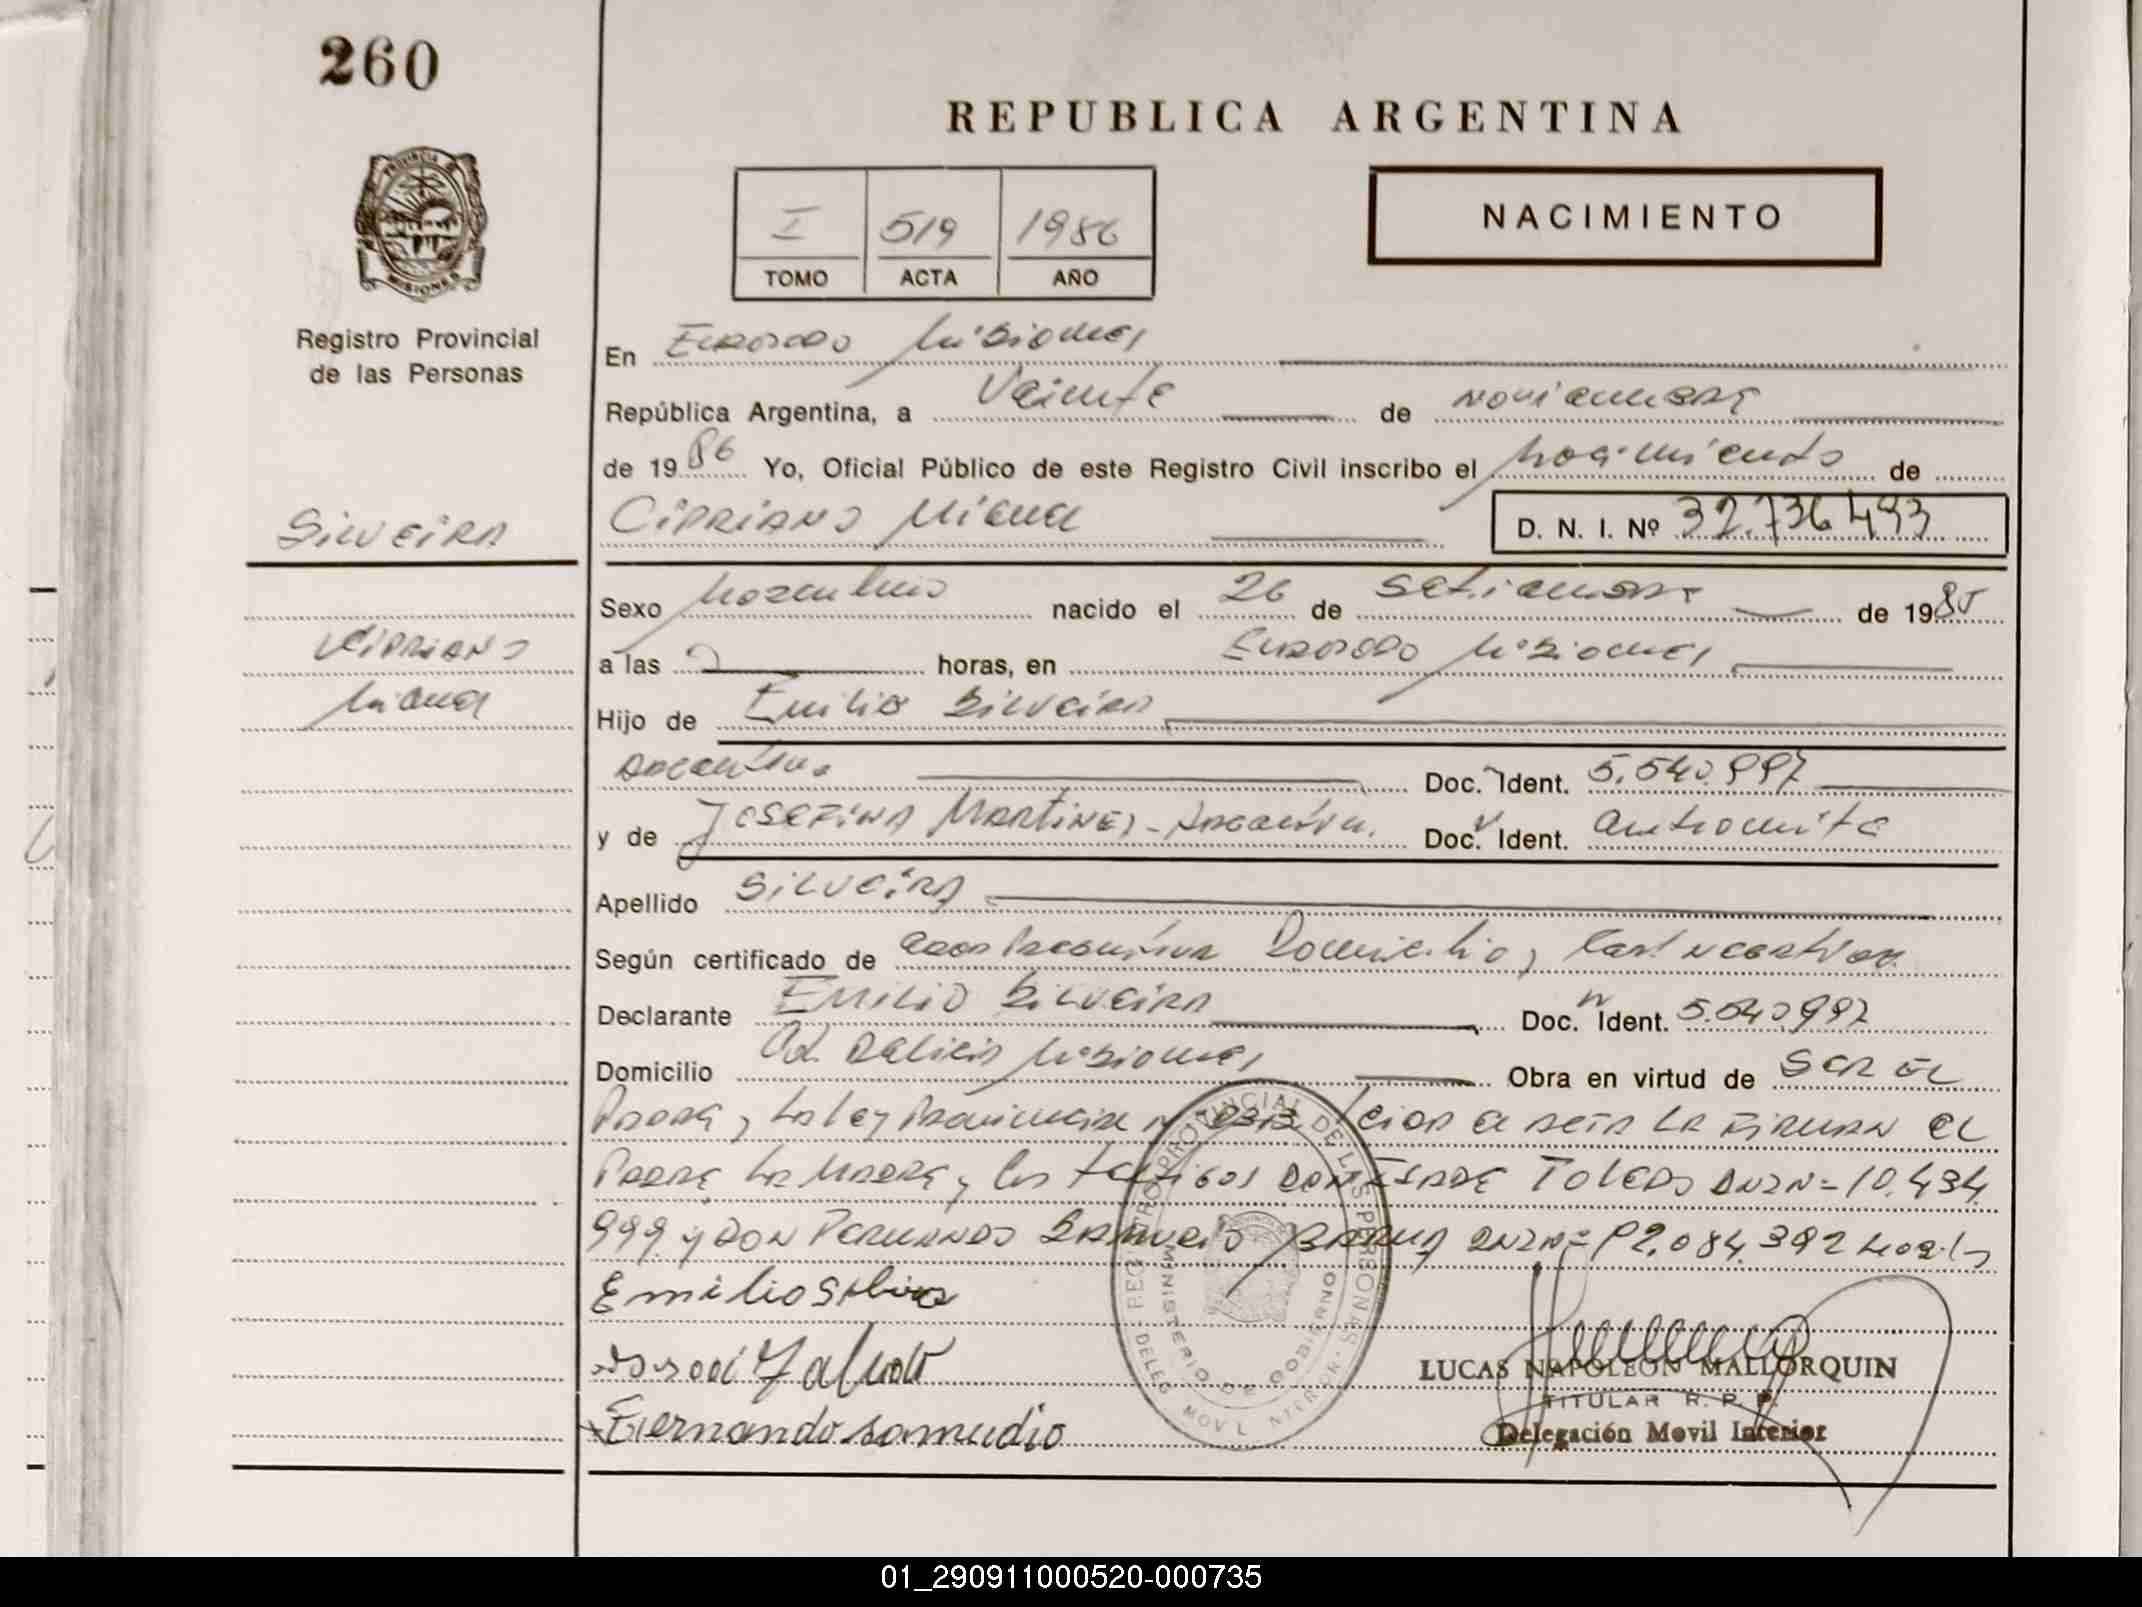 260
REPUBLICA ARGENTINA
NACIMIENTO
I 519 1986
TOMO ACTA AÑO
PROVINCIA DE MISIONES
Registro Provincial
de las Personas
En Eldorado Misiones
República Argentina, a Veinte de noviembre
de 1986 Yo, Oficial Público de este Registro Civil inscribo el nacimiento de
Silveira
Cipriano Miguel
D. N. I. Nº 32.736.493
Sexo Masculino nacido el 26 de Setiembre de 1985
Cipriano
Miguel
a las horas, en Eldorado Misiones
Hijo de Emilio Silveira
Argentino Doc. Ident. 5.540.997
y de Josefina Martinez - Argentina. Doc. Ident.
Apellido Silveira
Según certificado de Domicilio y
Declarante Emilio Silveira Doc. Ident. 5.540.997
Domicilio Col Delicia Misiones Obra en virtud de ser el
Padre y la ley Provincial la firman el
Padre la Madre y los testigos Don Toledo DNI Nº 10.434.
999 y Don Fernando Samudio DNI Nº 12.084.392
Emilio Silveira
Fernando samudio
REGISTRO PROVINCIAL DE LAS PERSONAS
MINISTERIO DE GOBIERNO
DELEG MOVIL INTERIOR
LUCAS NAPOLEON MALLORQUIN
TITULAR R. P. P.
Delegación Movil Interior
01_290911000520-000735